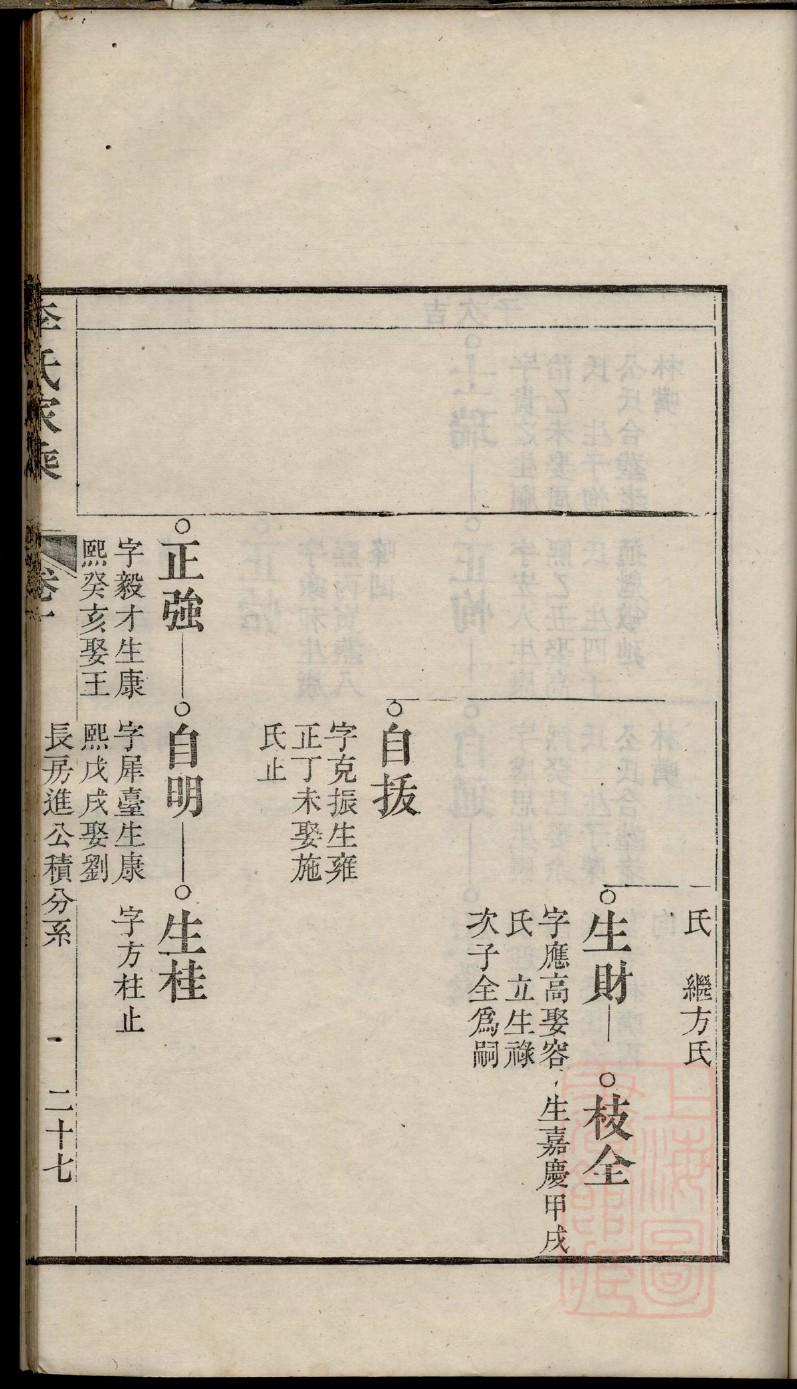 氏　繼方氏
生財
字應高娶容
氏　立生祿
次子全爲嗣
枝全
生嘉慶甲戌
自拔
字克振生雍
正丁未娶施
氏止
正強
字毅才生康
熙癸亥娶王
自明
字犀臺生康
熙戊戌娶劉
生桂
字方柱止
李氏家乘
卷一
長房進公積分系
二十七